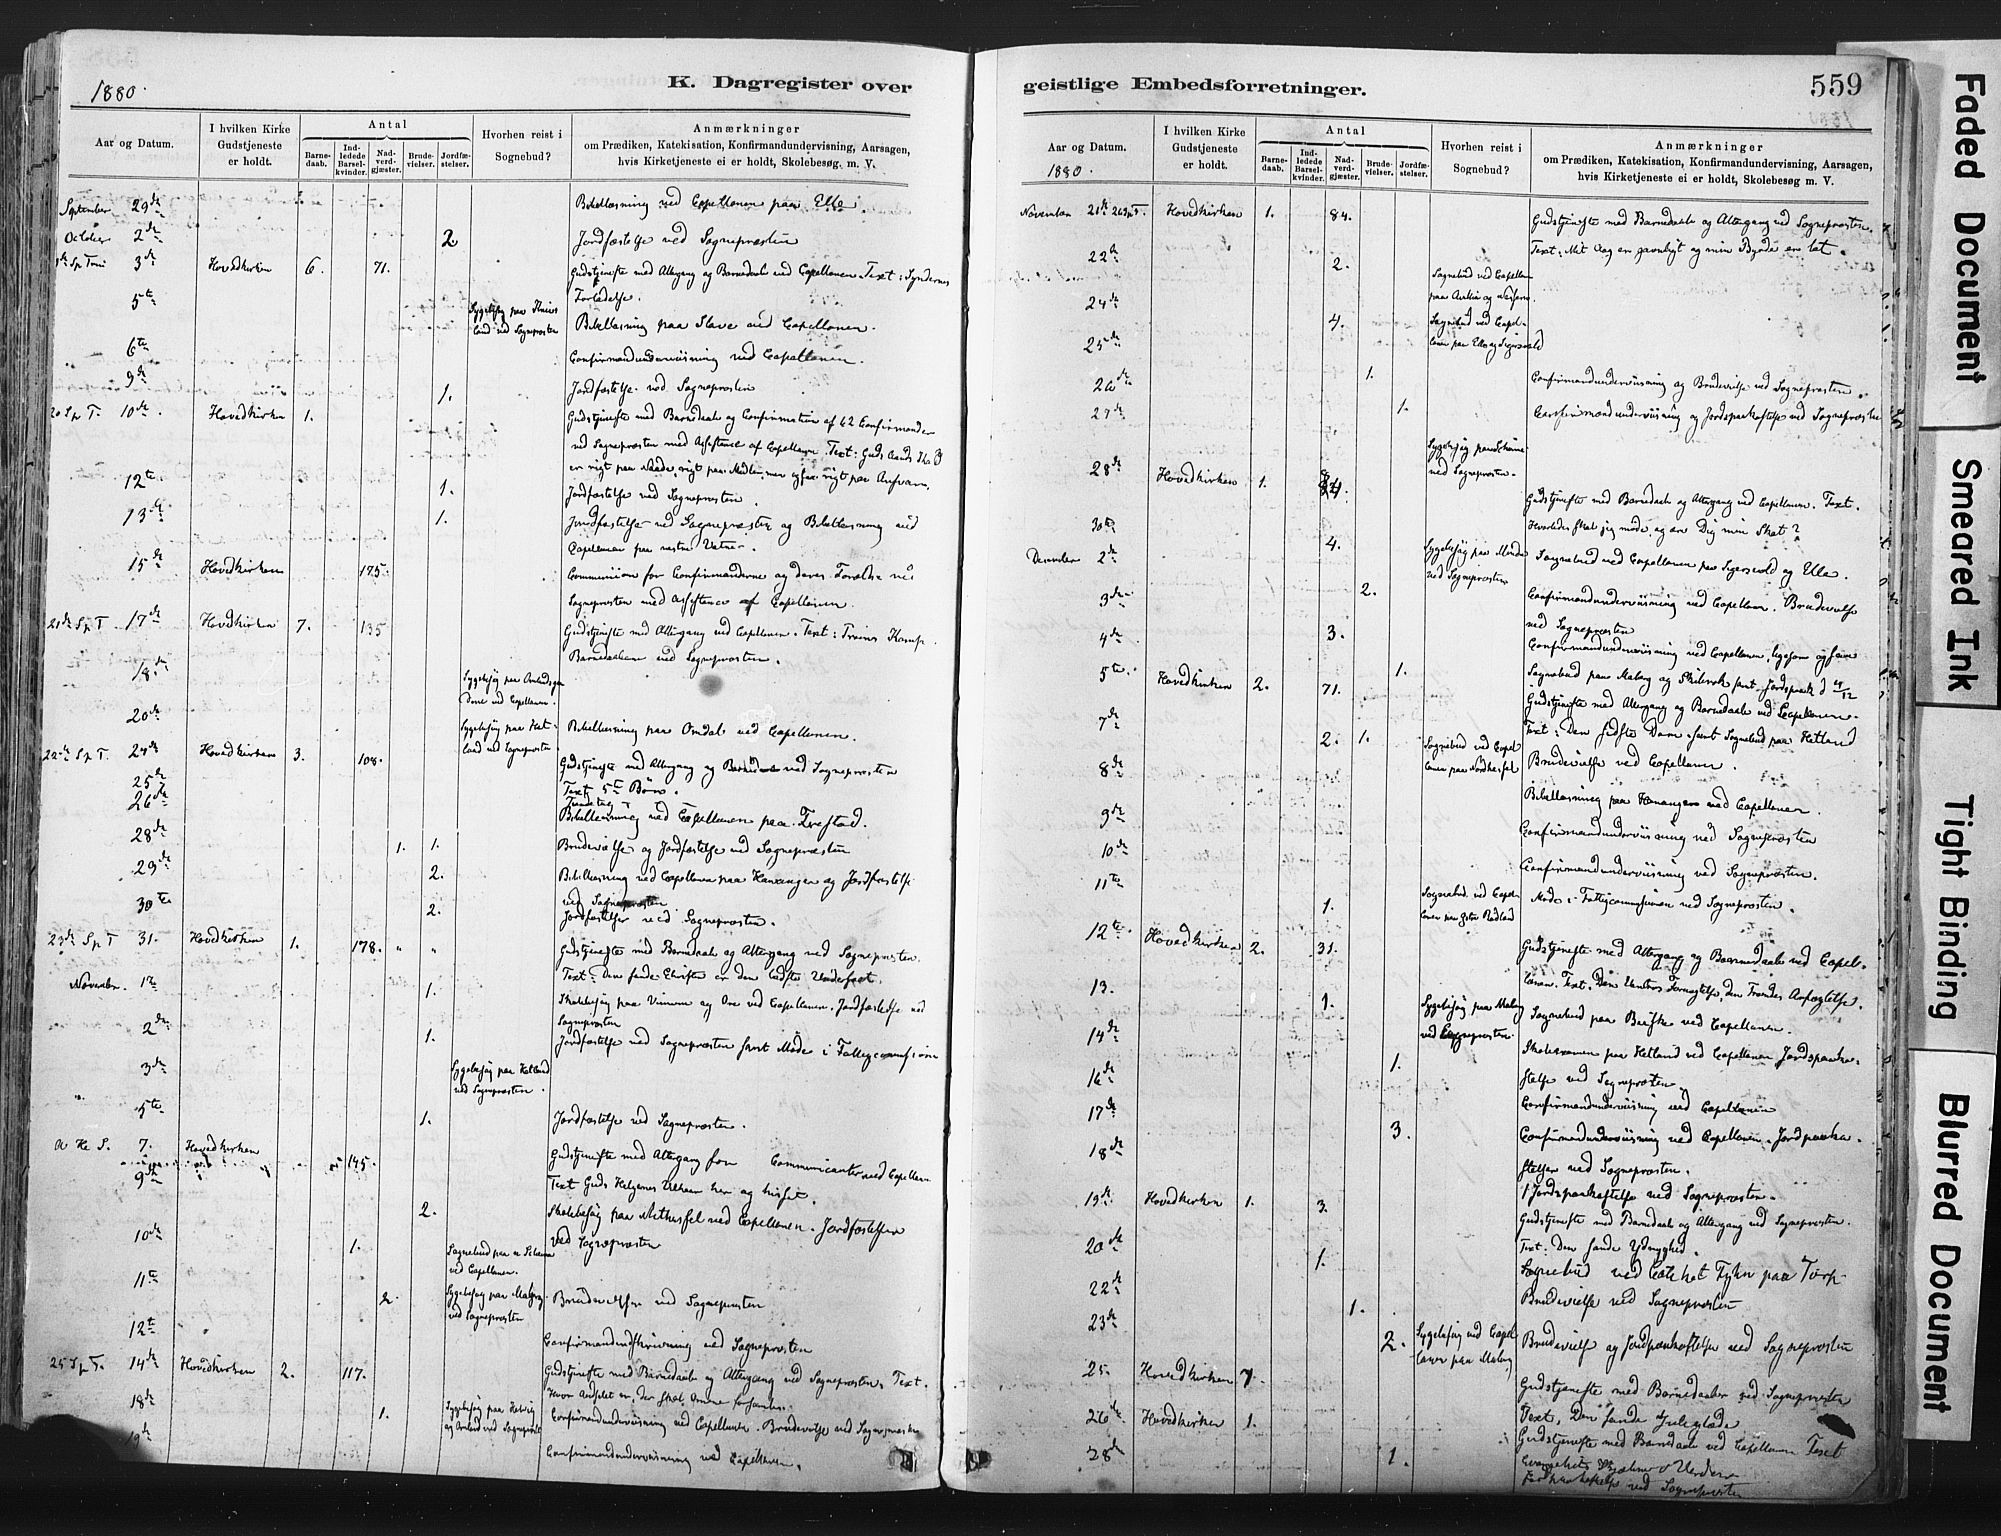 1880.
K. Dagregister over
Aar og Datum.
I hvilken Kirke Gudstjeneste er holdt.
Antal
Barnedaab.
Indledede Barselkvinder.
Nadverdgjæster.
Brudevielser.
Jordfæstelser.
Hvorhen reist i Sognebud?
Anmærkninger
om Prædiken, Katekisation, Konfirmandundervisning, Aarsagen,
hvis Kirketjeneste ei er holdt, Skolebesøg m. V.
September 29de Bibellæsning ved Capellanen paa Elle.
October 2de 2 Jordfæstelse ved Sognepræsten
3de Hovedkirken 6. 71. Gudstjeneste med Altergang og Barnedaab ved Capellanen. Text: Syndernes
Forladelse.
5te Sygebesøg paa land ved Sognepræsten Bibellæsning paa Slave ved Capellanen.
6te Confirmandundervisning ved Capellanen.
9de 1. Jordfæstelse ved Sognepræsten
20 S p T. 10de. Hovedkirken 1. Gudstjeneste med Barnedaab og Confirmation af 62 Confirmander
ved Sognepræsten med Assistence af Capellanen. Text: Guds Aands
er rigt paa Naade, rigt paa Midler, men ogsaa rigt paa Ansvar.
12te 1. Jordfæstelse ved Sognepræsten.
13de 1. Jordfæstelse ved Sognepræsten og Bibellæsning ved
Capellanen paa
15de Hovedkirken 175. Communion for Confirmanderne og deres Forældre ved
Sognepræsten med Assistence af Capellanen.
21de S p T 17de Hovedkirken 7. 135 Gudstjeneste med Altergang ved Capellanen. Text: Troens Kamp.
Barnedaaben ved Sognepræsten.
18de Sygebesøg paa ved Capellanen.
20de Sygebesøg paa Hetland ved Sognepræsten Bibellæsning paa Omdal ved Capellanen.
22de S p T. 24de Hovedkirken 3. 108. Gudstjeneste med Altergang og Barnedaab ved Sognepræsten
25de Text 5te Bøn.
26de Bibellæsning ved Capellanen paa Frestad.
28de 1. 1. Brudevielse og Jordfæstelse ved Sognepræsten
29de 2. Bibellæsning ved Capellanen paa Hanangen og Jordfæstelse
ved Sognepræsten
30te 2. Jordfæstelser ved Sognepræsten.
23de S p T 31. Hovedkirken 1. 178. " " Gudstjeneste med Barnedaab og Altergang ved Sognepræsten.
November 1ste 1. Skolebesøg paa og Ore ved Capellanen. Jordfæstelse ved
Sognepræsten
2de 1. Jordfæstelse ved Sognepræsten samt Møde i Fattigcommissionen
3de Sygebesøg paa Hetland ved Sognepræsten.
5te 1. Jordfæstelse ved Sognepræsten.
A He S. 7. Hovedkirken 145. Gudstjeneste med Altergang for Communicanter ved Capellanen
Text Guds Helgenes Vilkaar her og hisset.
9de 2. Skolebesøg paa ved Capellanen. Jordfæstelser
ved Sognepræsten
10de 1. Sognebud paa ved Capellanen.
11te 2. Sygebesøg paa ved Sognepræsten Brudevielser ved Sognepræsten
12te Confirmandindskrivning ved Sognepræsten
25 S p T. 14de Hovedkirken 2. 117. Gudstjeneste med Barnedaab og Altergang ved Sognepræsten. Text.
Hvor Aadslet er, der skal Ørnene forsamles.
18de 1. Sygebesøg paa ved Sognepræsten Confirmandundervisning ved Capellanen. Brudevielse ved Sognepræsten
19de Confirmandundervisning ved Capellanen.
geistlige Embedsforretninger.
559
Aar og Datum.
1880.
I hvilken Kirke Gudstjeneste er holdt.
Antal
Barnedaab.
Indledede Barselkvinder.
Nadverdgjæster.
Brudevielser.
Jordfæstelser.
Hvorhen reist i Sognebud?
Anmærkninger
om Prædiken, Katekisation, Konfirmandundervisning, Aarsagen,
hvis Kirketjeneste ei er holdt, Skolebesøg m. V.
November 21de 26 S p T. Hovedkirken 1. 84. Gudstjeneste med Barnedaab og Altergang ved Sognepræsten.
Text: Mit Aag er gavnligt og min Byrde er let.
22de 2. Sognebud ved Capellanen paa
24de 4. Sognebud ved Capellanen paa Elle og Sigersvold
25de
26de. 1. Confirmandundervisning og Brudevielse ved Sognepræsten.
27de 1. Confirmandundervisning og Jordspaakastelse ved Sognepræsten
Sygebesøg paa ved Sognepræsten.
28de Hovedkirken 1. Gudstjeneste med Barnedaab og Altergang ved Capellanen. Text.
Hvorledes skal jeg møde og ære Dig min Skat?
30te 4. Sognebud ved Capellanen paa Sigersvold og Elle.
December 2de Sygebesøg paa ved Sognepræsten
3de 2. Confirmandundervisning ved Capellanen. Brudevielse
ved Sognepræsten
4de 3. Confirmandundervisning ved Capellanen, ligesom ogsaa
5te. Hovedkirken 2. 71. 1. Sognebud paa Maberg og Skibrok samt Jordspaak d 4/12
Gudstjeneste med Altergang og Barnedaab ved Capellanen.
Text: Den sidste Dom. samt Sognebud paa Hetland
7de 2. 1. Sognebud ved Capellanen paa Brudevielse ved Capellanen.
8de Bibellæsning paa Hanangen ved Capellanen
9de Confirmandundervisning ved Sognepræsten
10de Confirmandundervisning ved Sognepræsten.
11te 1. Sognebud ved Capellanen paa Møde i Fattigcommissionen ved Sognepræsten.
12te. Hovedkirken 2. 31. Gudstjeneste med Altergang og Barnedaab ved Capellanen. Text: Den Vantros Fornegtelse, den Troendes
13. 1. Sygebesøg paa Maberg ved Sognepræsten. Sognebud paa ved Capellanen.
14de Skoleexamen paa Hetland ved Capellanen Jordspaakastelse ved Sognepræsten.
16de 1. Confirmandundervisning ved Capellanen
17de 3. Confirmandundervisning ved Capellanen. Jordpaakastelser ved Sognepræsten.
18de 1 Jordspaakastelse ved Sognepræsten.
19de Hovedkirken 1. 3. Gudstjeneste med Barnedaab og Altergang ved Sognepræsten.
Text: Den sande Ydmyghed.
20de 1. Sognebud ved paa Torp
22de 1. Brudevielse ved Sognepræsten
23de 2. Sygebesøg ved Capellanen paa Maberg Brudevielse og Jordpaakastelser ved Sognepræsten
25. Hovedkirken 7. Gudstjeneste med Barnedaaber ved Sognepræsten
Text. Den sande Juleglæde
26de Hovedkirken 1. Gudstjeneste med Barnedaab ved Capellanen Text
28de 1. Jordpaakastelse ved Sognepræsten
Faded Document
Smeared Ink
Tight Binding
Blurred Document